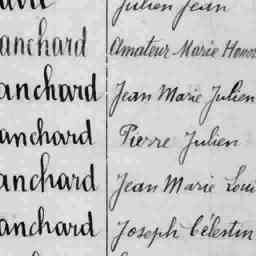 Julien Jean
anchard Amateur Marie Henri
anchard Jean Marie Julien
anchard Pierre Julien
anchard Jean Marie Loui
anchard Joseph Célestin